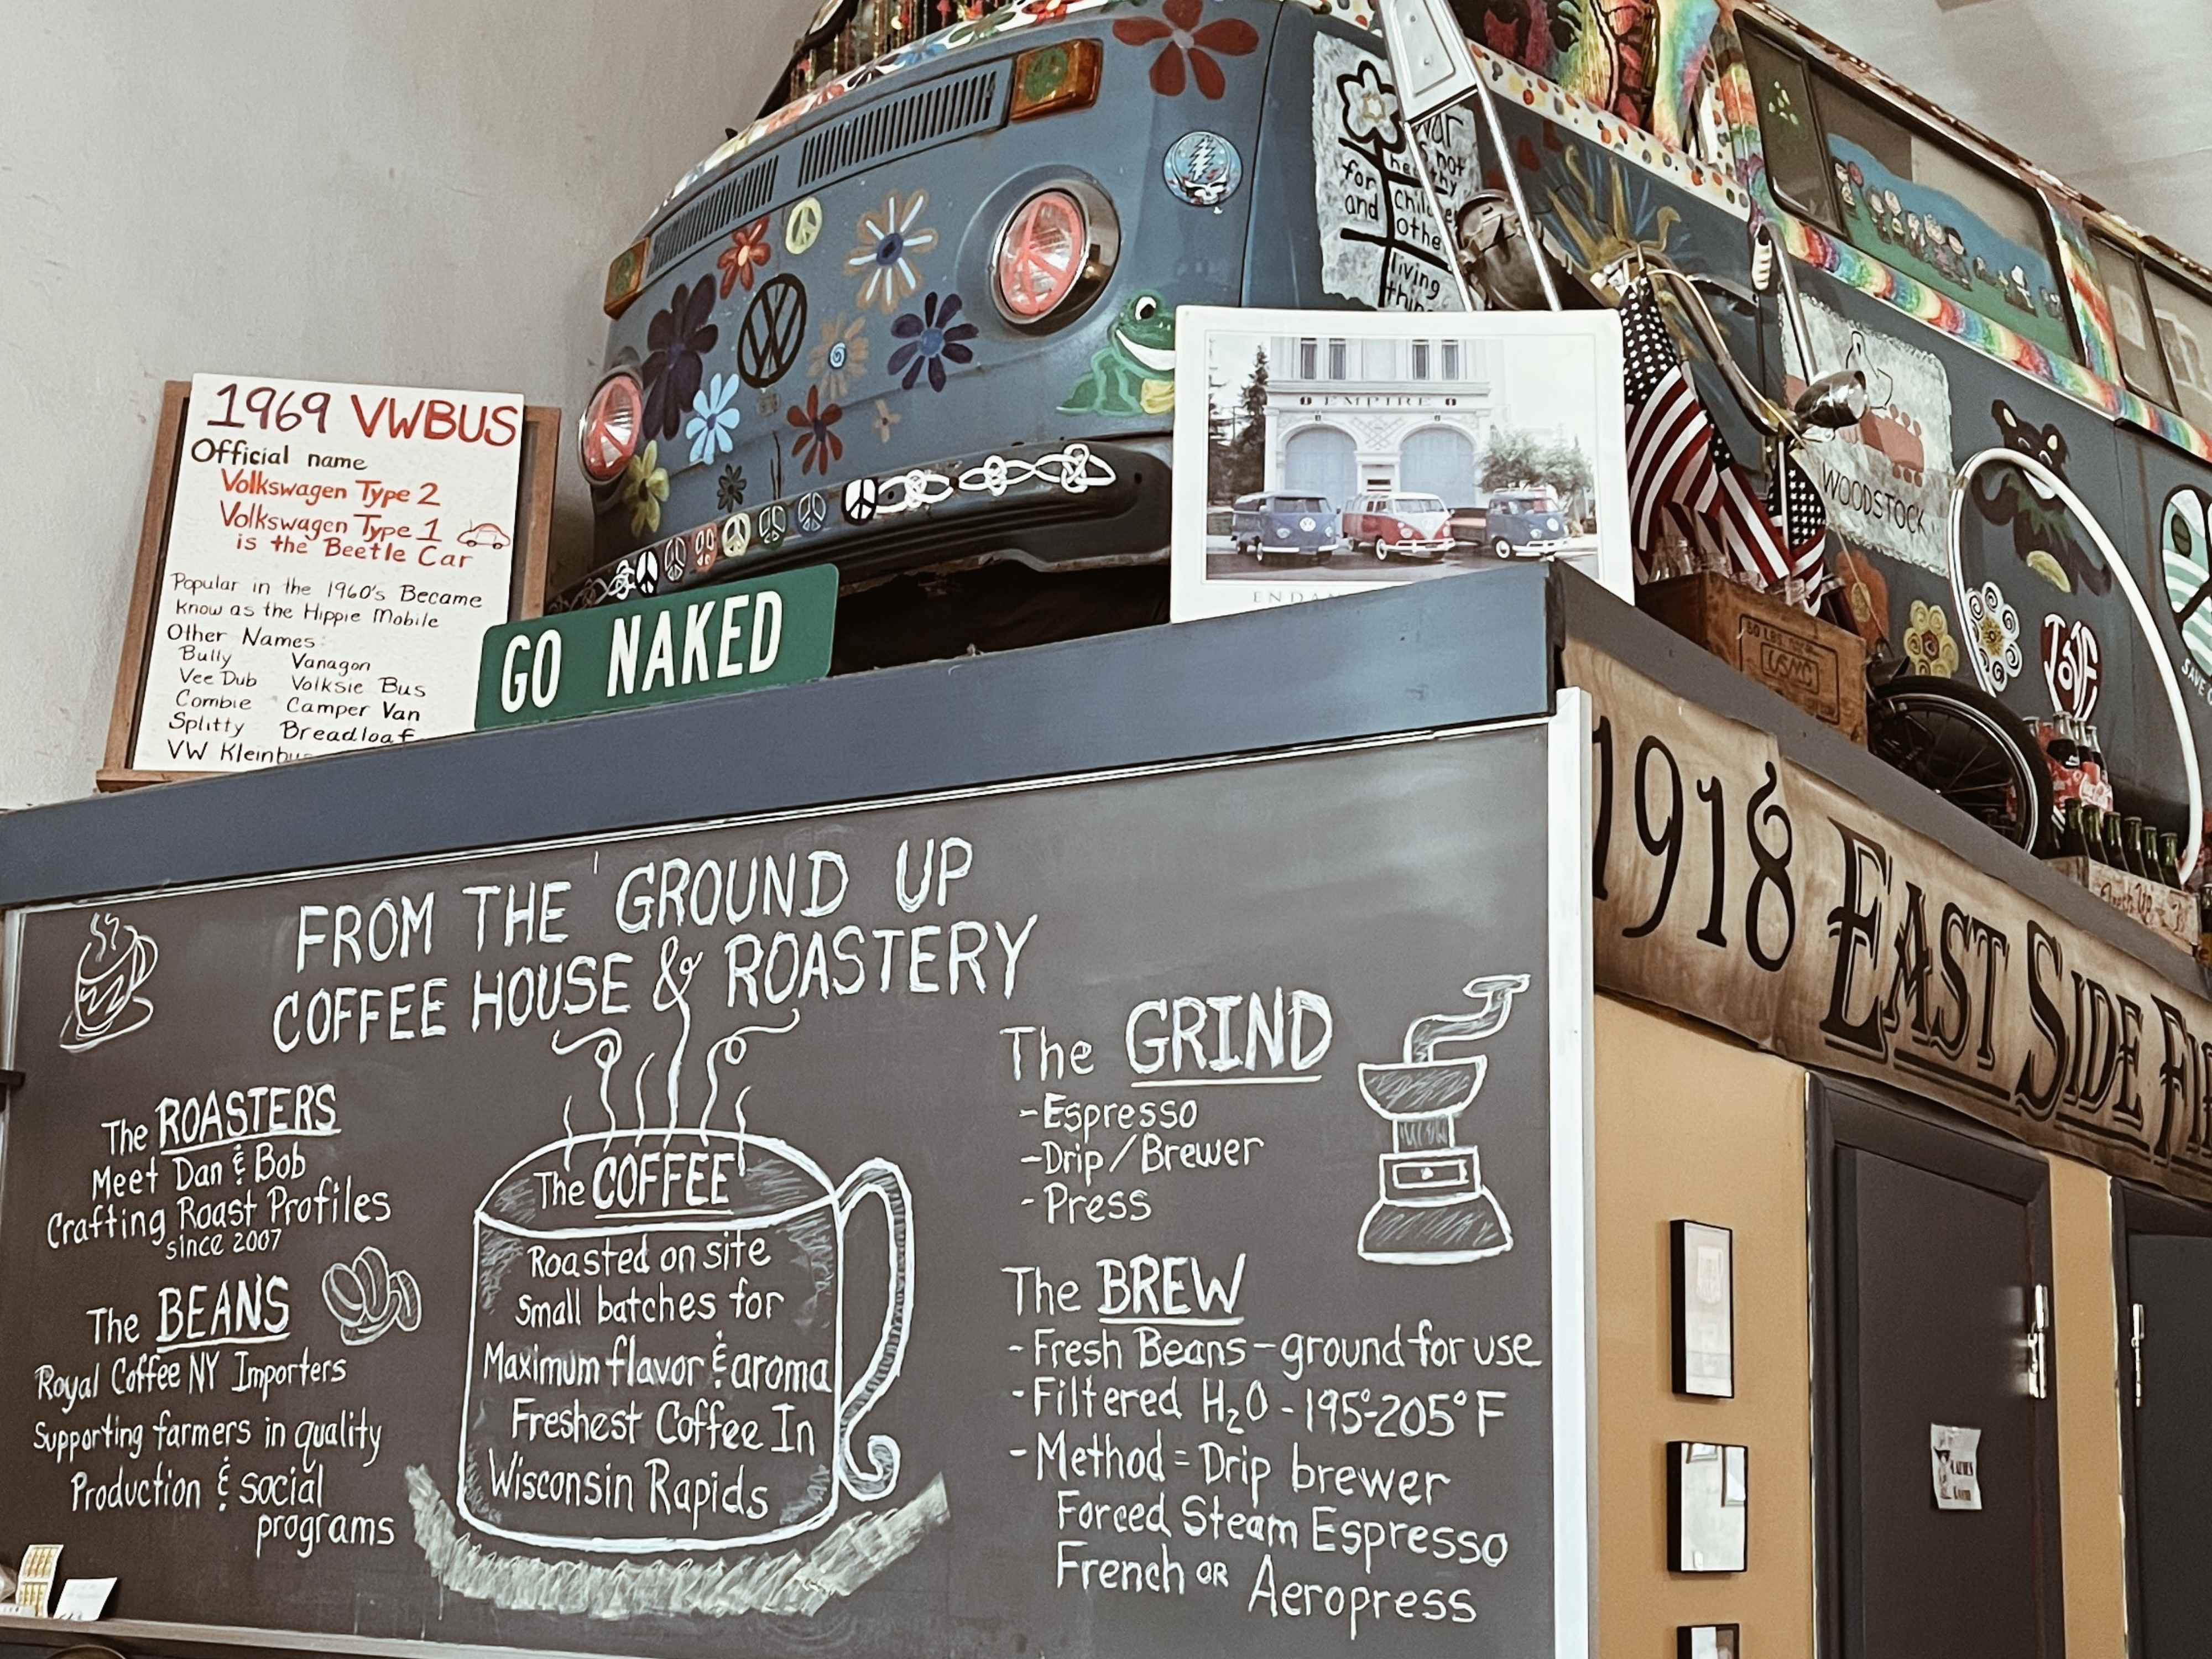 1969 VWBUS
Official name
Volkswagen Type 2
Volkswagen Type 1
is the Beetle Car
Popular in the 1960's Became
Know as the Hippie Mobile
Other Names:
Bully Vanagon
Vee Dub Volksie Bus
Combie Camper Van
Splitty Breadloaf
VW Kleinbus
GO NAKED
War
is not
healthy
for children
and other
living
things
EMPIRE
WOODSTOCK
LOVE
SAVE
USMC
1918 EAST SIDE
FROM THE GROUND UP
COFFEE HOUSE & ROASTERY
The ROASTERS
Meet Dan & Bob
Crafting Roast Profiles
since 2007
The BEANS
Royal Coffee NY Importers
Supporting farmers in quality
Production & social
programs
The COFFEE
Roasted on site
Small batches for
Maximum flavor & aroma
Freshest Coffee In
Wisconsin Rapids
The GRIND
-Espresso
-Drip/Brewer
- Press
The BREW
- Fresh Beans - ground for use
- Filtered H₂O - 195°-205°F
- Method = Drip brewer
Forced Steam Espresso
French OR Aeropress